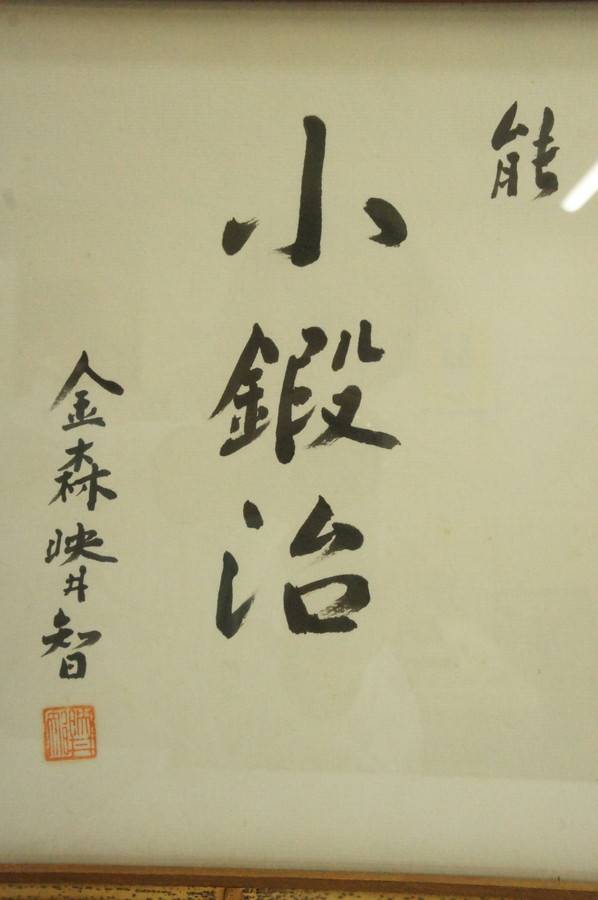 能
小鍛治
金森映井智